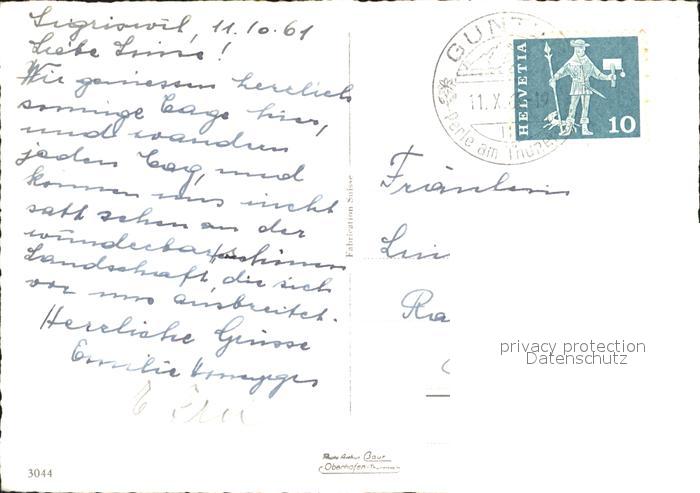 Sigriswil, 11.10.61
Liebe Line!
Wir geniessen herrlich
sonnige Tage hier,
und wandern
jeden Tag, und
können uns nicht
satt sehen an der
wunderbar schönen
Landschaft, die sich
vor uns ausbreitet.
Herrliche Grüsse
Emilie
3044
Fabrication Suisse
GUNT
11.X.
Perle am Thune
HELVETIA
10
Fräulein
Lin
Ra
privacy protection
Datenschutz
Gaur
Oberhofen-Thunersee